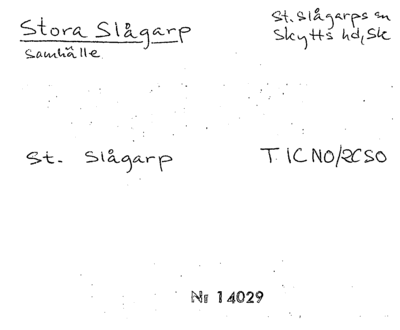 Stora Slågarp
samhälle
St. Slågarps sn
Skytts hd, Sk
St. Slågarp
T 1C NO/2C SO
Nr 14029